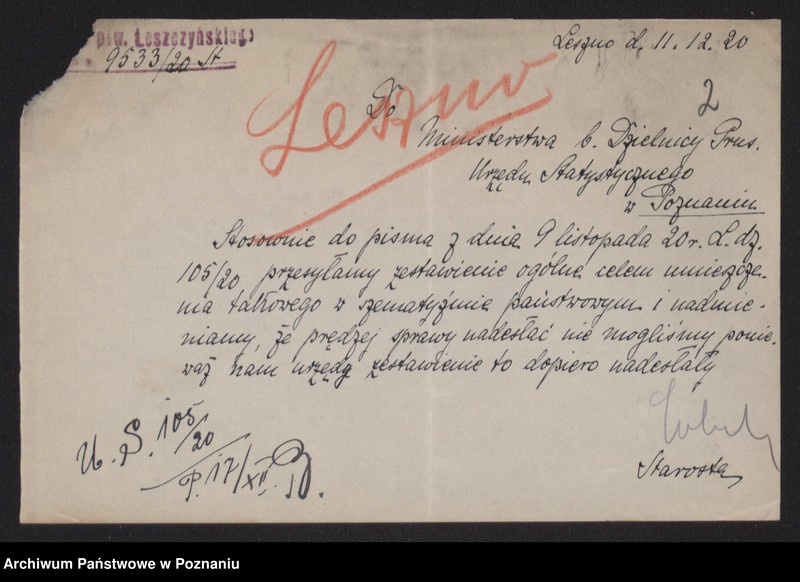 pow. Leszczyńskiego
9533/20 St
Leszno d. 11. 12. 20
Leszno
2
Do
Ministerstwa b. Dzielnicy Prus.
Urzędu Statystycznego
w Poznaniu
Stosownie do pisma z dnia 9 listopada 20 r. L. dz.
105/20 przesyłamy zestawienie ogólne celem umieszcze-
nia takowego w szematyźmie państwowym i nadmie-
niamy, że prędzej sprawy nadesłać nie mogliśmy ponie-
waż nam urzędy zestawienie to dopiero nadesłały
U. S. 105/20
P. 17/XII.
Starosta
Archiwum Państwowe w Poznaniu